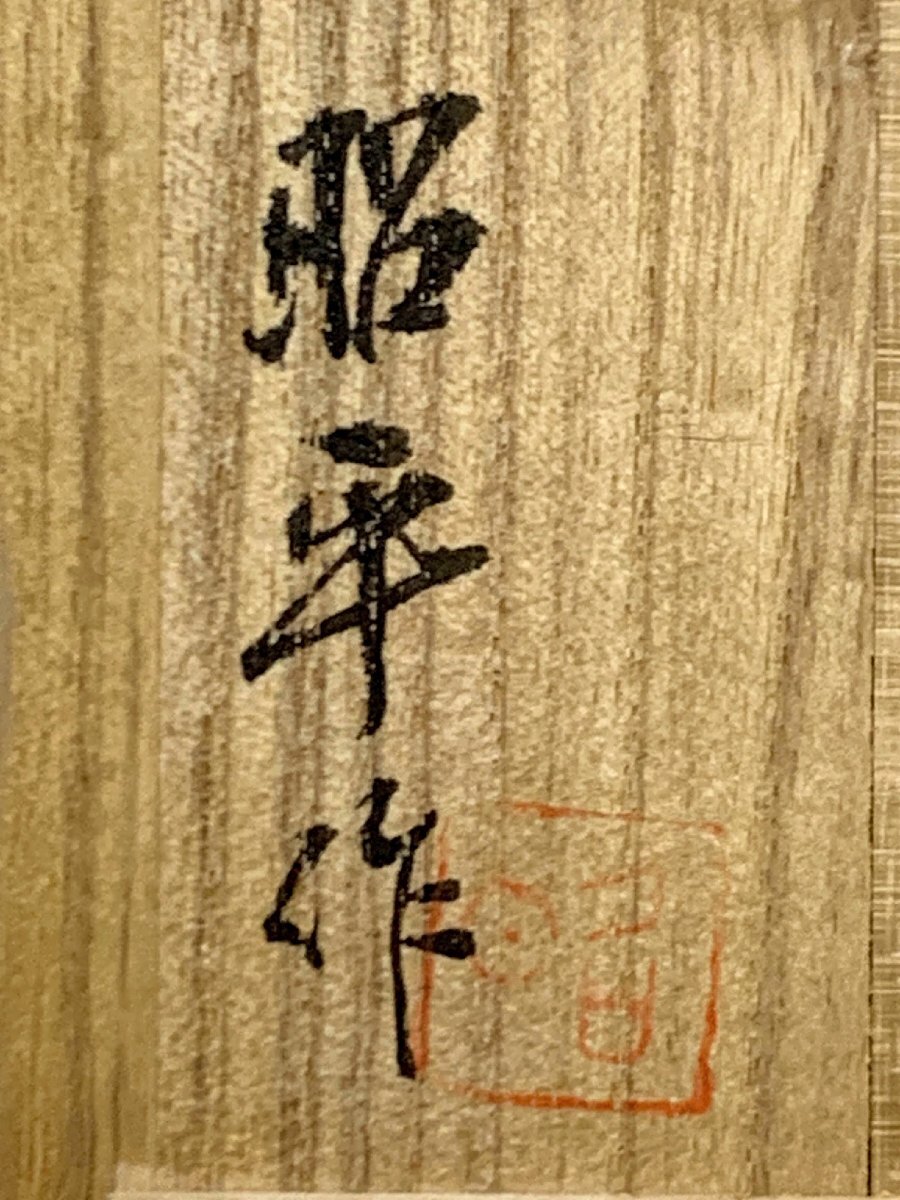 昭平作